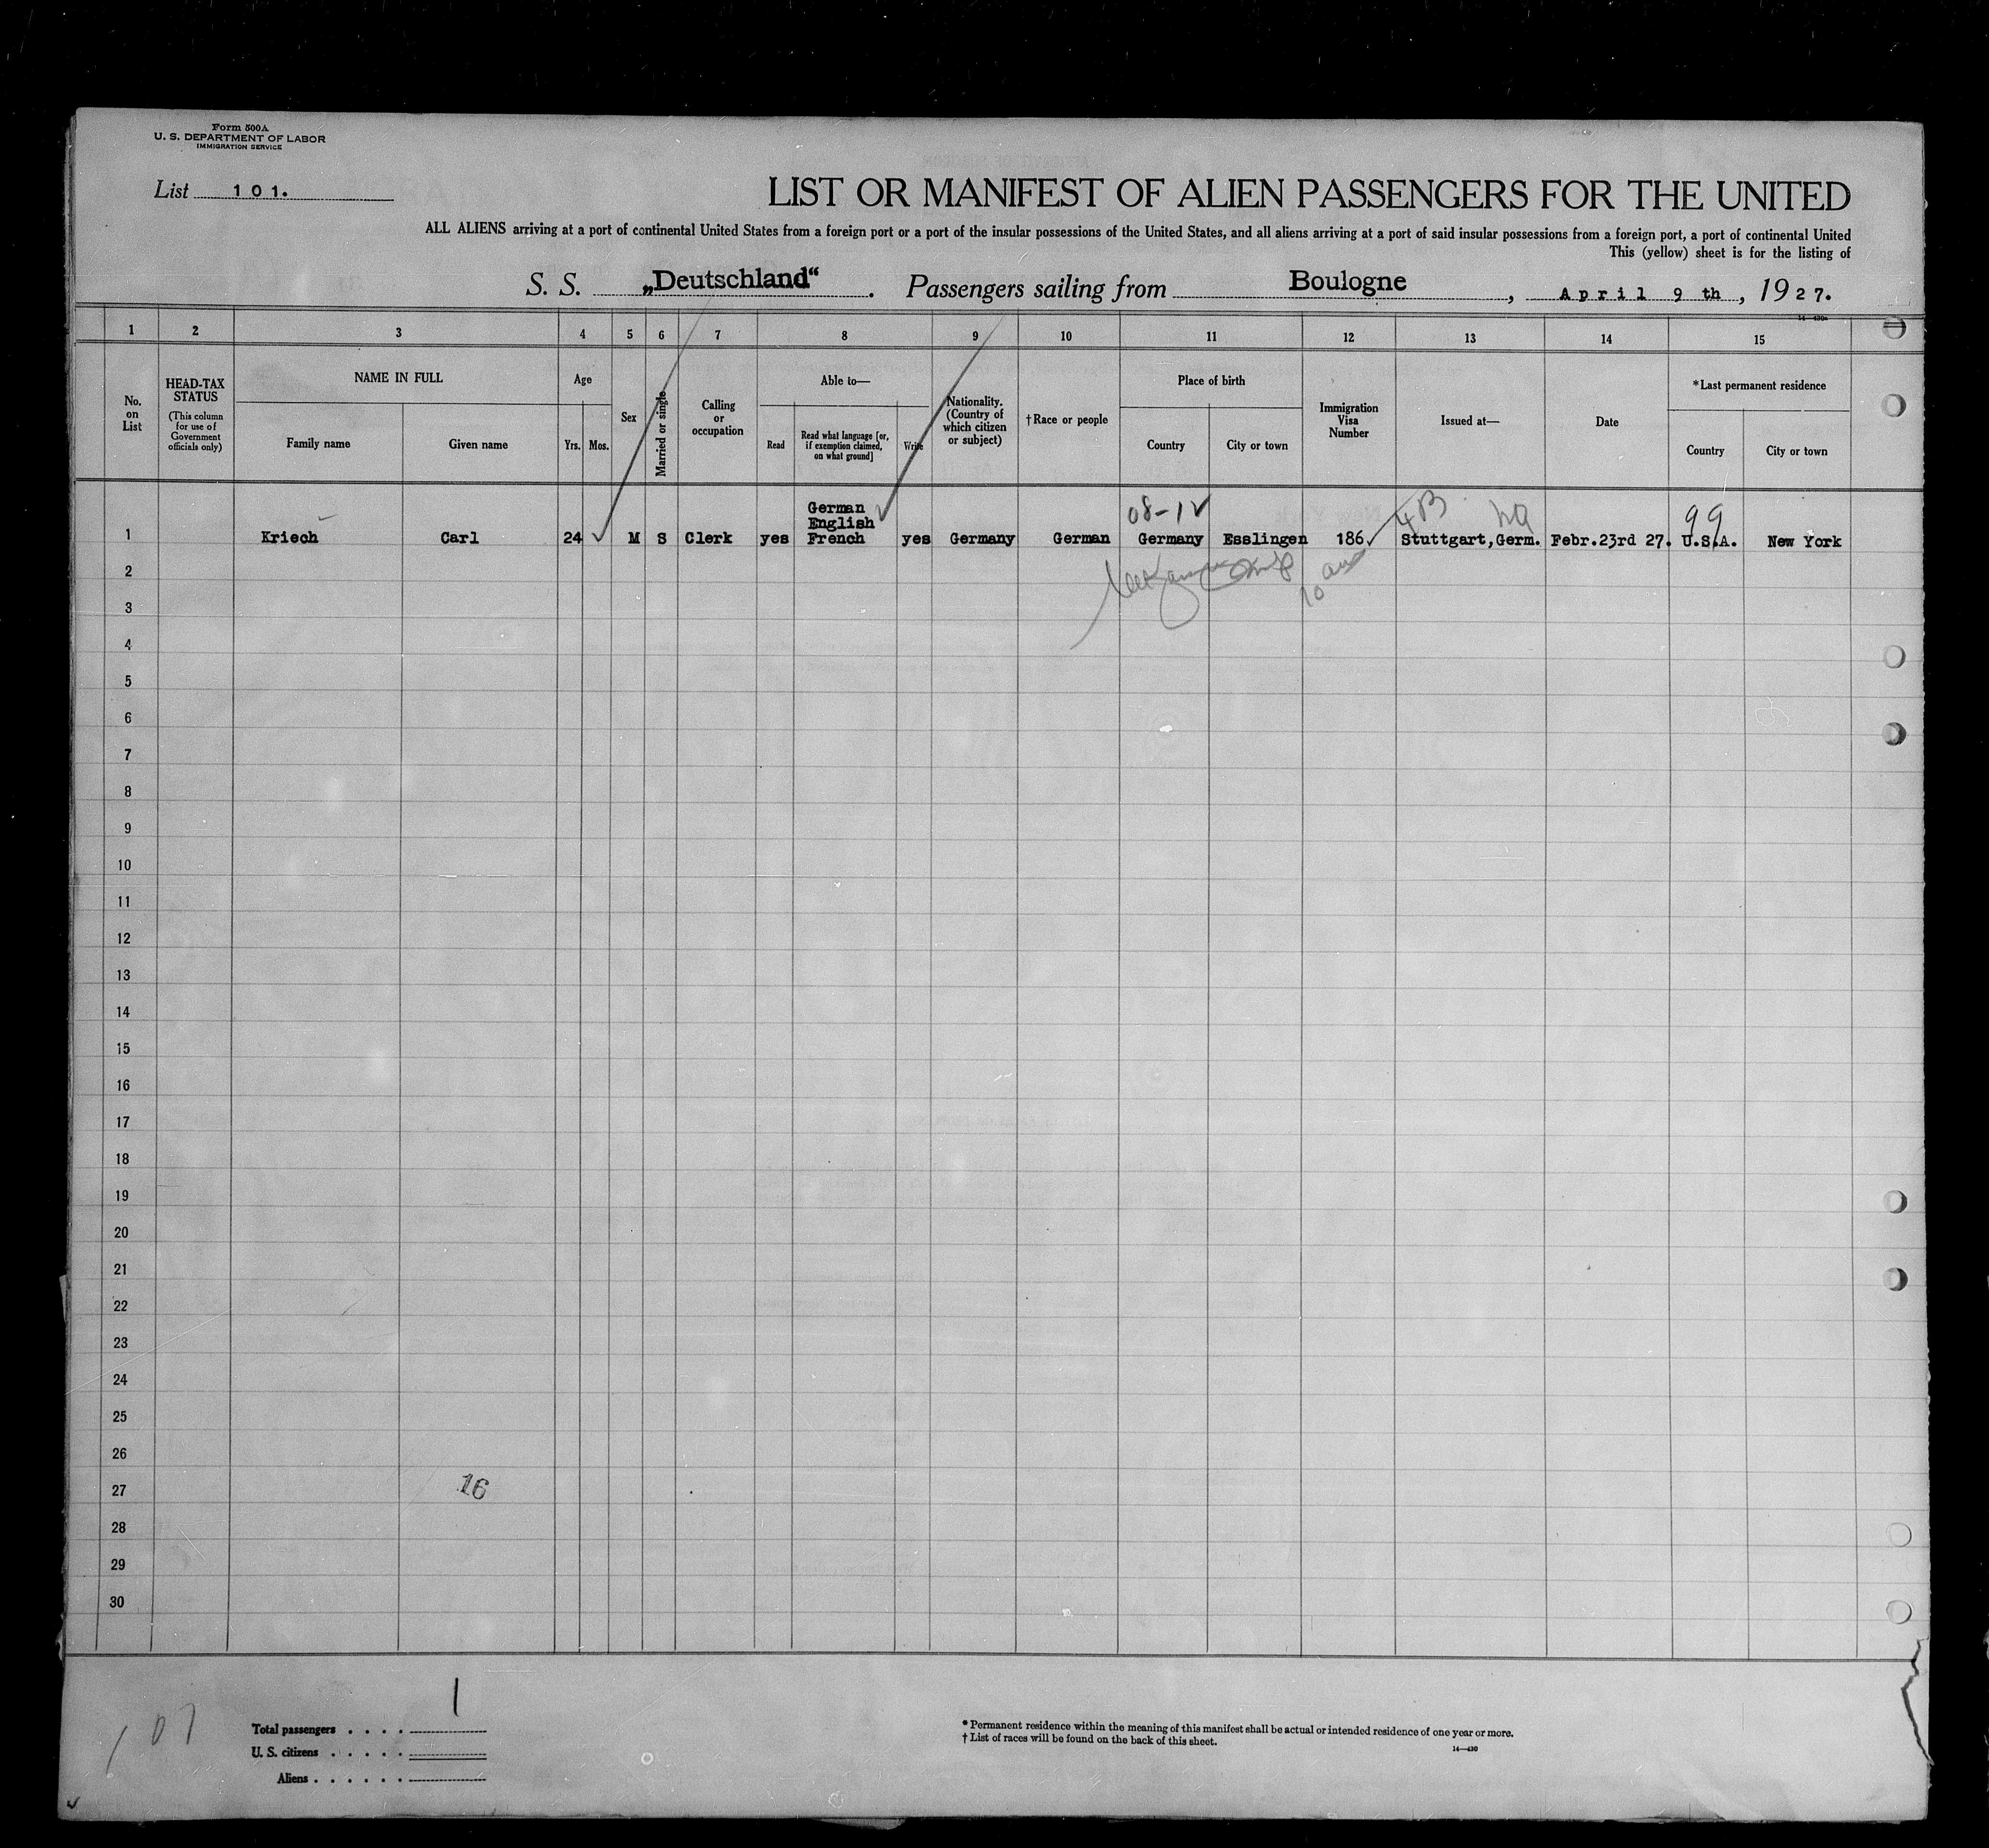 Form 500A
U. S. DEPARTMENT OF LABOR
IMMIGRATION SERVICE
List 101.
LIST OR MANIFEST OF ALIEN PASSENGERS FOR THE UNITED
ALL ALIENS arriving at a port of continental United States from a foreign port or a port of the insular possessions of the United States, and all aliens arriving at a port of said insular possessions from a foreign port, a port of continental United
This (yellow) sheet is for the listing of
S. S. „Deutschland“. Passengers sailing from Boulogne, April 9 th, 1927.
1 2 3 4 5 6 7 8 9 10 11 12 13 14 15
No. on List
HEAD-TAX STATUS
(This column for use of Government officials only)
NAME IN FULL
Family name Given name
Age
Yrs. Mos.
Sex
Married or single
Calling or occupation
Able to—
Read
Read what language [or, if exemption claimed, on what ground]
Write
Nationality. (Country of which citizen or subject)
†Race or people
Place of birth
Country City or town
Immigration Visa Number
Issued at—
Date
*Last permanent residence
Country City or town
08-12 4B 99
1 Kriech Carl 24 M S Clerk yes German English French yes Germany German Germany Esslingen 186 Stuttgart, Germ. Febr.23rd 27. U.S.A. New York
2
3
4
5
6
7
8
9
10
11
12
13
14
15
16
17
18
19
20
21
22
23
24
25
26
27 16
28
29
30
107
1
Total passengers
U. S. citizens
Aliens
* Permanent residence within the meaning of this manifest shall be actual or intended residence of one year or more.
† List of races will be found on the back of this sheet.
14—430